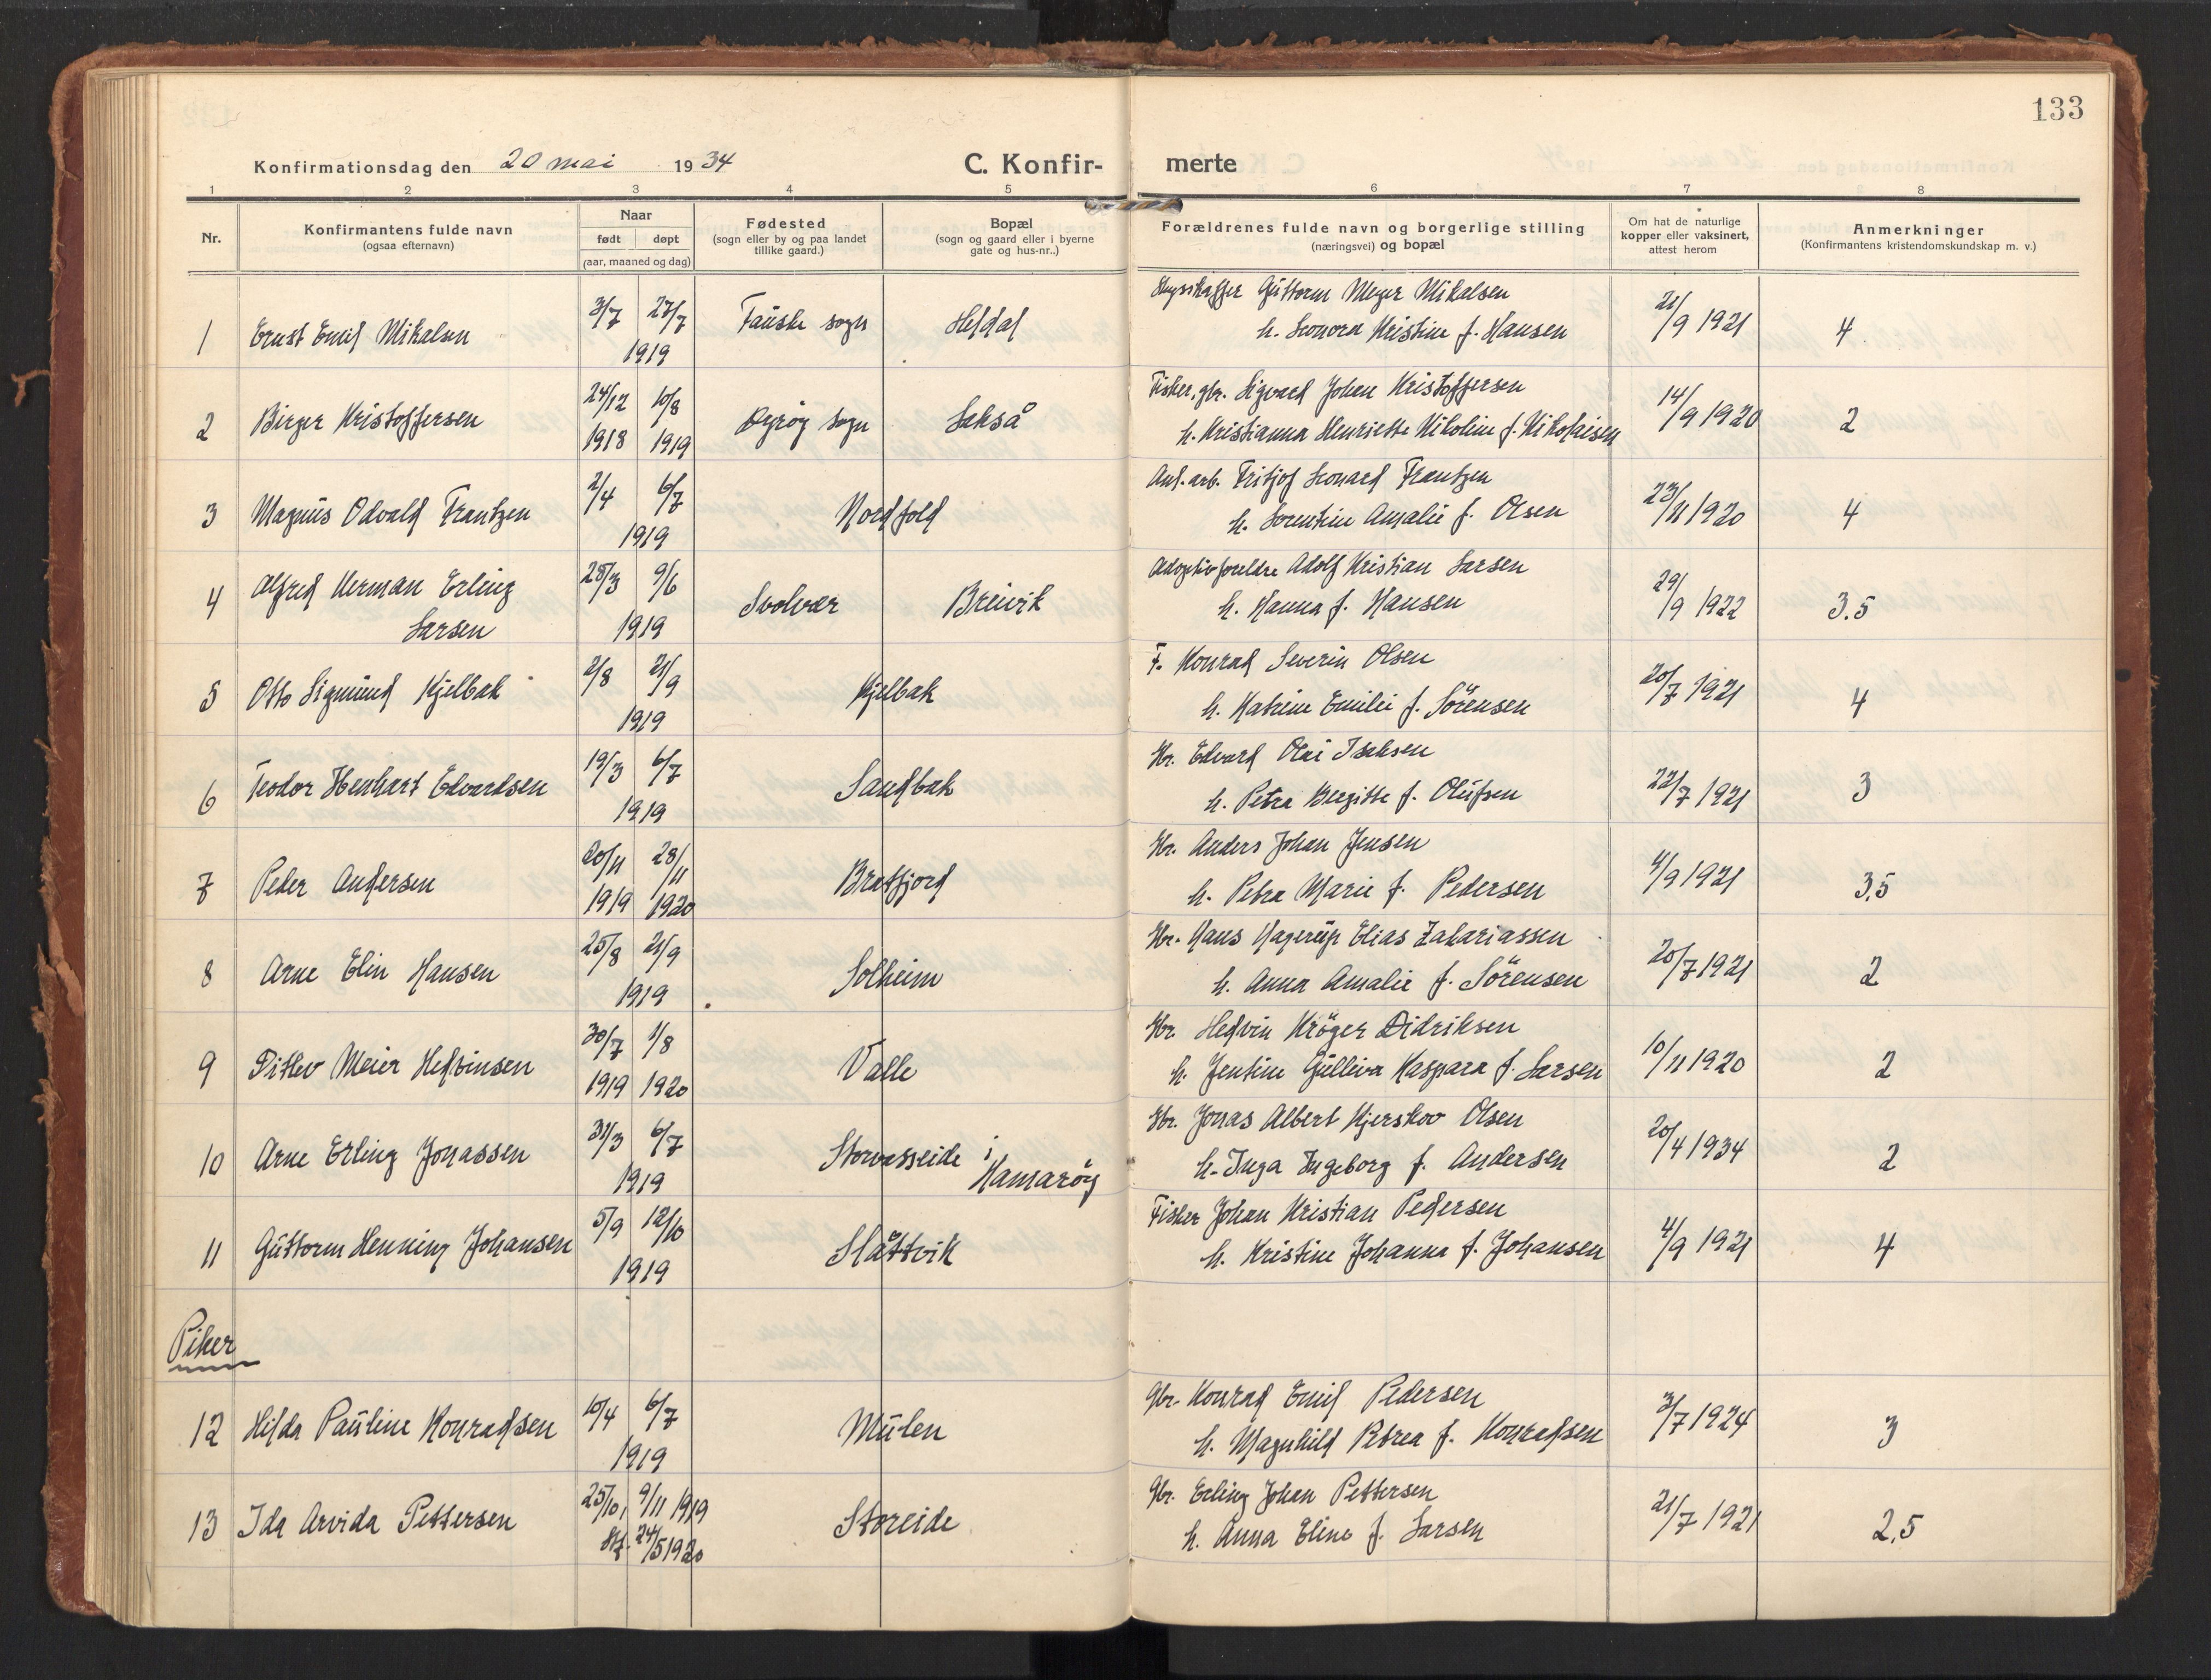 133
Konfirmationsdag den 20 mai 1934
C. Konfir-
merte
1 2 3 4 5 6 7 8
Nr.
Konfirmantens fulde navn
(ogsaa efternavn)
Naar
født døpt
(aar, maaned og dag)
Fødested
(sogn eller by og paa landet
tillike gaard.)
Bopæl
(sogn og gaard eller i byerne
gate og hus-nr..)
Forældrenes fulde navn og borgerlige stilling
(næringsvei) og bopæl
Om hat de naturlige
kopper eller vaksinert,
attest herom
Anmerkninger
(Konfirmantens kristendomskundskap m. v.)
Guttorm Meyer Mikalsen
1 Ernst Emil Mikalsen 3/7 27/7 Fauske sogn Heldal h. Leonora Kristine f. Hansen 21/9 1921 4
1919
Fisker, gbr. Sigvard Johan Kristoffersen
2 Birger Kristoffersen 24/12 10/8 Øyrøy sogn Lakså h. Kristianna Henriette Nikoline f. Nikolaisen 14/9 1920 2
1918 1919
Anl. arb. Fritjof Leonard Frantzen
3 Magnus Odvald Frantzen 2/4 6/7 Nordfold h. Lorentine Amalie f. Olsen 23/11 1920 4
1919
Adoptivforeldre Adolf Kristian Larsen
4 Alfred Herman Erling 28/3 9/6 Svolvær Breivik h. Hanna f. Hansen 29/9 1922 3.5
Larsen 1919
F. Konrad Severin Olsen
5 Otto Sigmund Kjelbak 2/8 21/9 Kjelbak h. Katrine Emilie f. Sörensen 20/7 1921 4
1919
Gbr. Edvard Olai Isaksen
6 Teodor Henhart Edvardsen 19/3 6/7 Sandbak h. Petra Bergitte f. Olufsen 22/7 1921 3
1919
Gbr. Anders Johan Jensen
7 Peder Andersen 20/11 28/11 Bratfjord h. Petra Marie f. Pedersen 4/9 1921 3,5
1919 1920
Gbr. Hans Hagerup Elias Zakariassen
8 Arne Elin Hansen 25/8 21/9 Solheim h. Anna Amalie f. Sörensen 20/7 1921 2
1919
Gbr. Hedvin Kröger Didriksen
9 Ditlev Meier Hedvinsen 30/7 1/8 Valle h. Jentine Gulleiva Kaspara f. Larsen 10/11 1920 2
1919 1920
Gbr. Jonas Albert Kjerskov Olsen
10 Arne Erling Jonassen 31/3 6/7 Storvasseide i h. Inga Ingeborg f. Andersen 20/4 1934 2
1919 Hamarøy
Fisker Johan Kristian Pedersen
11 Guttorm Henning Johansen 5/9 12/10 Slåttvik h. Kristine Johanna f. Johansen 4/9 1921 4
1919
Piker
Gbr. Konrad Emil Pedersen
12 Hilda Pauline Konradsen 10/4 6/7 Mulen h. Magnhild Petrea f. Konradsen 3/7 1924 3
1919
Gbr. Erling Johan Pettersen
13 Ida Arvida Pettersen 25/10, 9/11 1919 Storeide h. Anna Eline f. Larsen 21/7 1921 2,5
24/5 1920